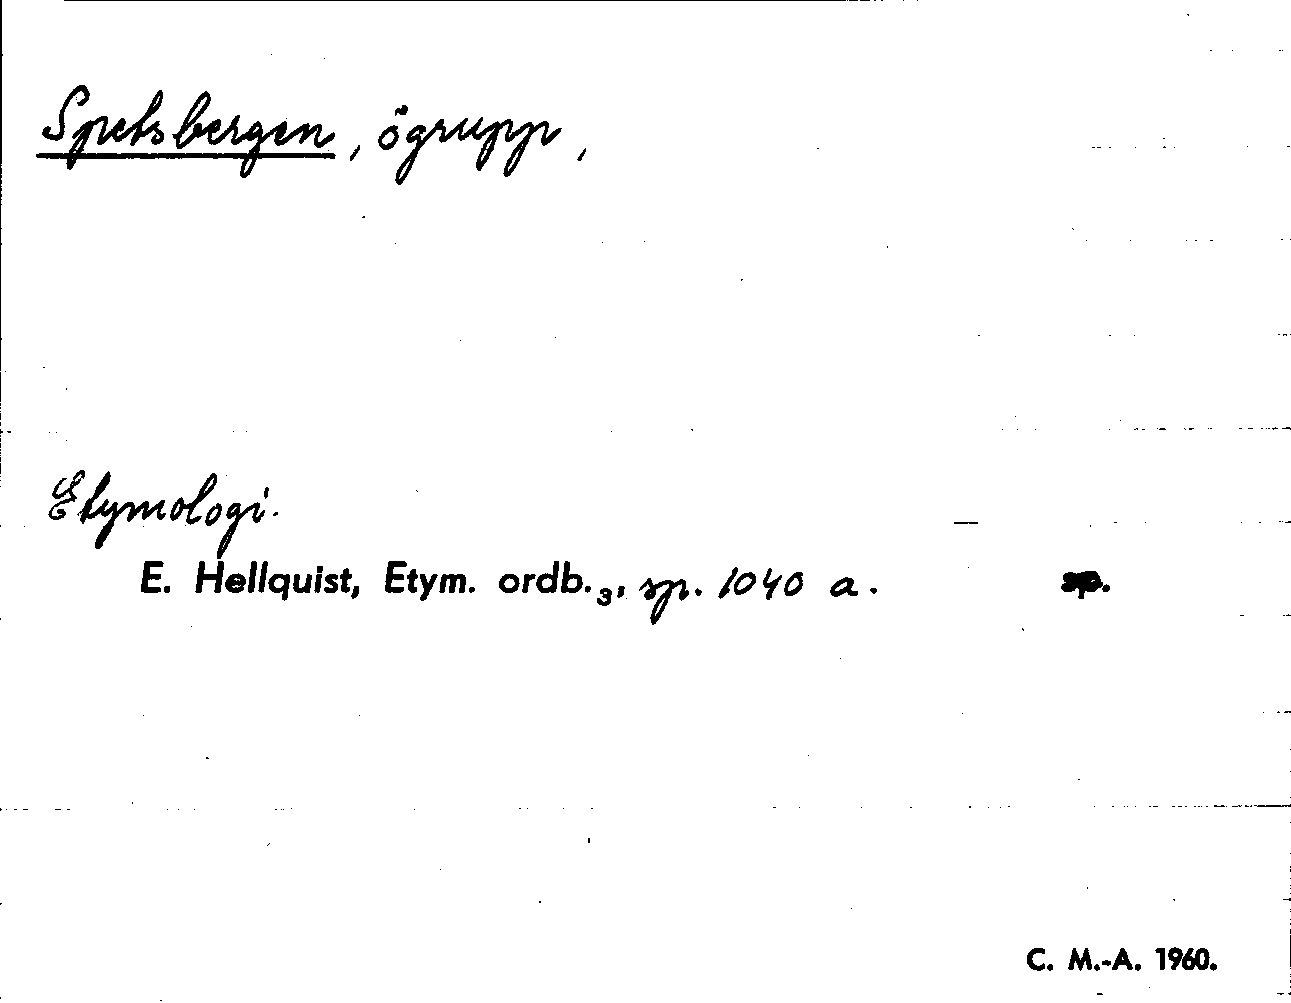 Spetsbergen, ögrupp,
Etymologi.
E. Hellquist, Etym. ordb.₃, sp. 1040 a. sp.
C. M.-A. 1960.